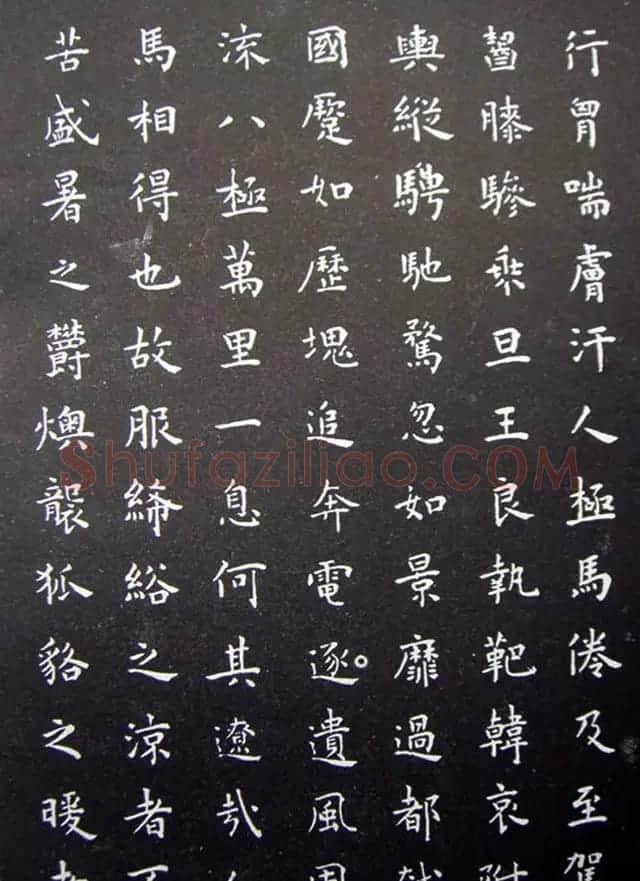 行胷喘膚汗人極馬倦及至駕
齧膝驂乘旦王良執靶韓哀附
輿縱騁馳騖忽如景靡過都越
國蹷如歷塊追奔電逐遺風周
流八極萬里一息何其遼哉
馬相得也故服絺綌之涼者不
苦盛暑之鬱燠襲狐貉之暖者
Shufaziliao.COM